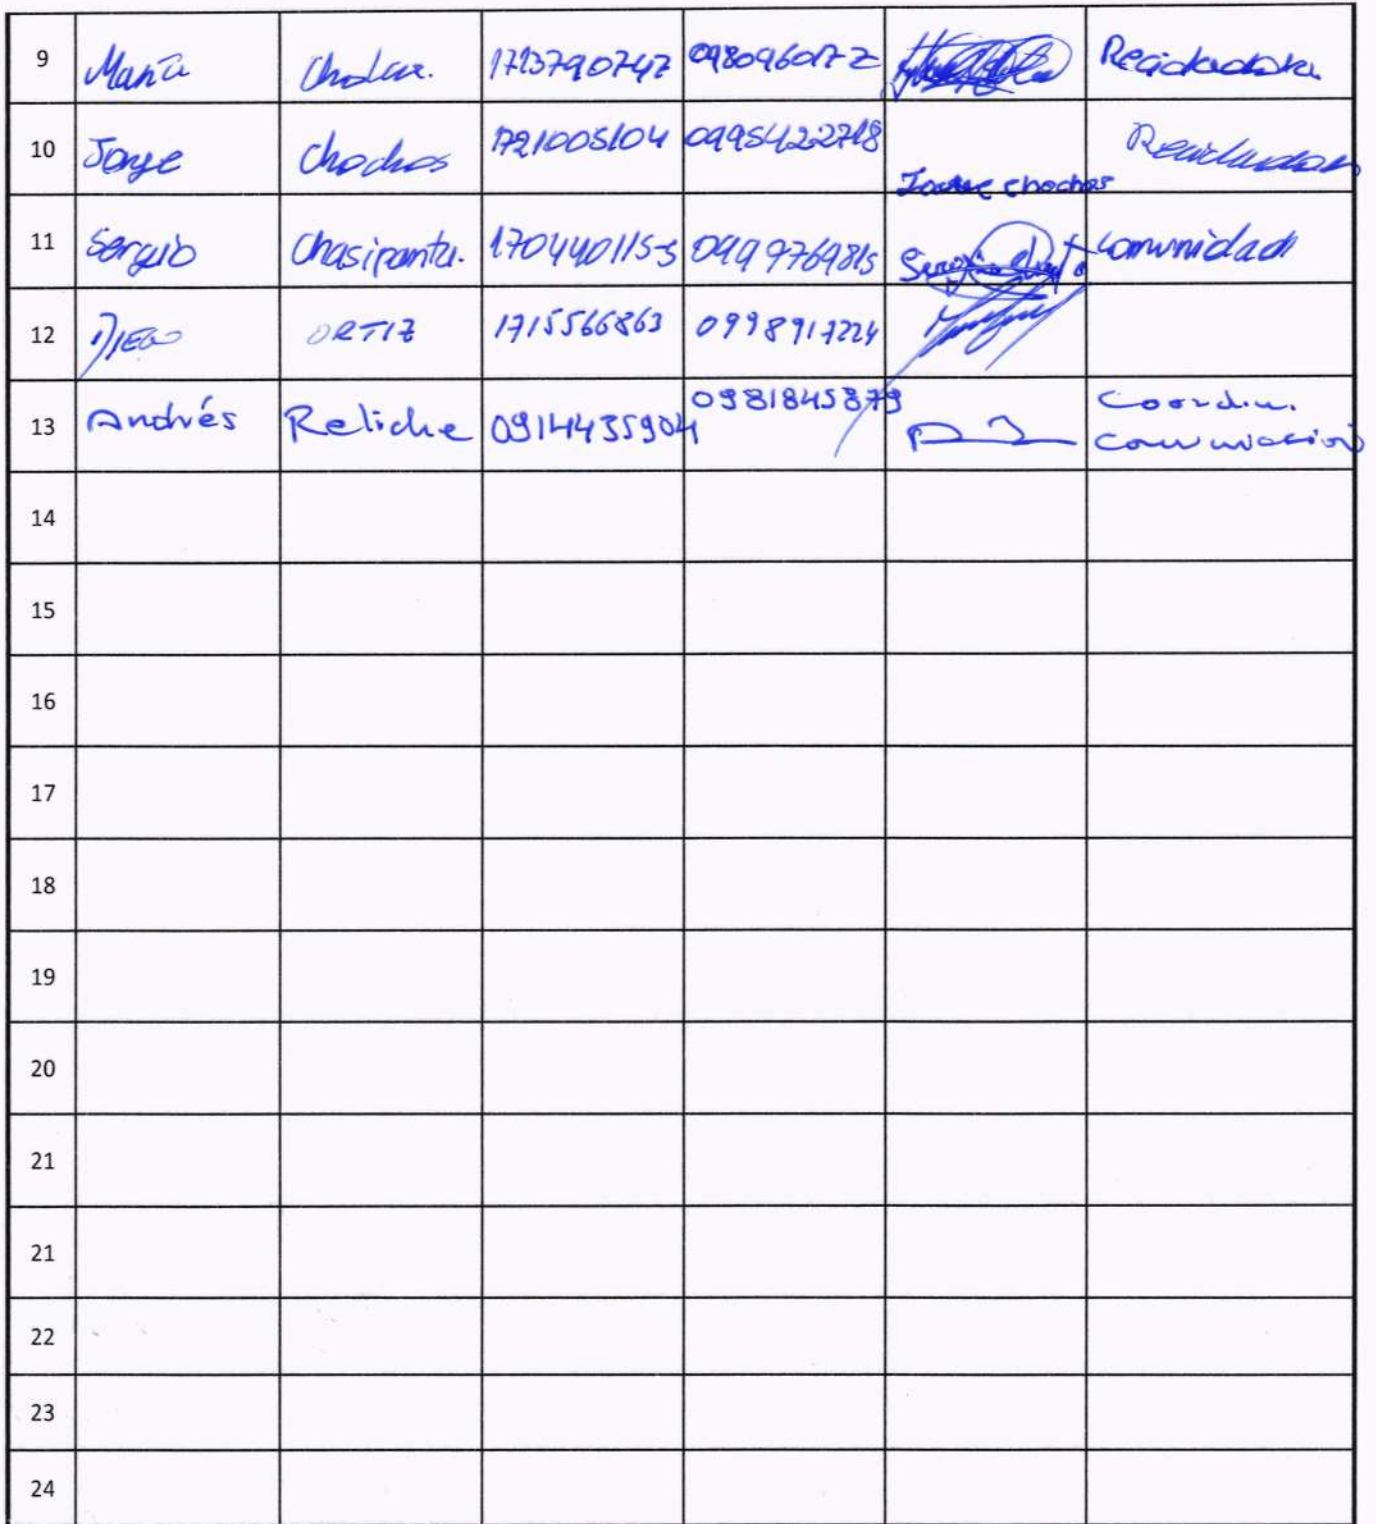 9 María 1713790747 Recicladora
10 Jorge Chochos 1721005104 0995422718 Jorge Chochos Reciclador
11 Sergio Chasipanta. 170440115-5 0999769815 Comunidad
12 DIEGO ORTIZ 1715566863 0998917224
13 Andrés Reliche 0914435904 0981845879 Coordin.
Comunicación
14
15
16
17
18
19
20
21
21
22
23
24